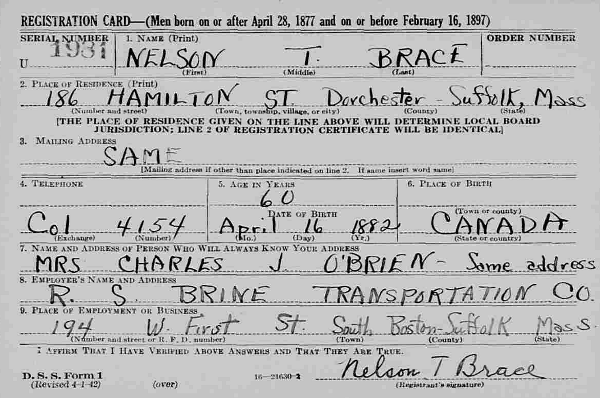 REGISTRATION CARD—(Men born on or after April 28, 1877 and on or before February 16, 1897)
SERIAL NUMBER 1. NAME (Print) ORDER NUMBER
U 1931 NELSON T. BRACE
(First) (Middle) (Last)
2. PLACE OF RESIDENCE (Print)
186 HAMILTON ST. Dorchester - Suffolk, Mass
(Number and street) (Town, township, village, or city) (County) (State)
[THE PLACE OF RESIDENCE GIVEN ON THE LINE ABOVE WILL DETERMINE LOCAL BOARD
JURISDICTION; LINE 2 OF REGISTRATION CERTIFICATE WILL BE IDENTICAL]
3. MAILING ADDRESS
SAME
[Mailing address if other than place indicated on line 2. If same insert word same]
4. TELEPHONE 5. AGE IN YEARS 6. PLACE OF BIRTH
60
DATE OF BIRTH (Town or county)
Col 4154 April 16 1882 CANADA
(Exchange) (Number) (Mo.) (Day) (Yr.) (State or country)
7. NAME AND ADDRESS OF PERSON WHO WILL ALWAYS KNOW YOUR ADDRESS
MRS CHARLES J O'BRIEN - Same address
8. EMPLOYER'S NAME AND ADDRESS
R. S. BRINE TRANSPORTATION CO.
9. PLACE OF EMPLOYMENT OR BUSINESS
194 W. First St. South Boston-Suffolk Mass.
(Number and street or R. F. D. number) (Town) (County) (State)
I AFFIRM THAT I HAVE VERIFIED ABOVE ANSWERS AND THAT THEY ARE TRUE.
D. S. S. Form 1 Nelson T Brace
(Revised 4-1-42) (over) 16—21630-2 (Registrant's signature)